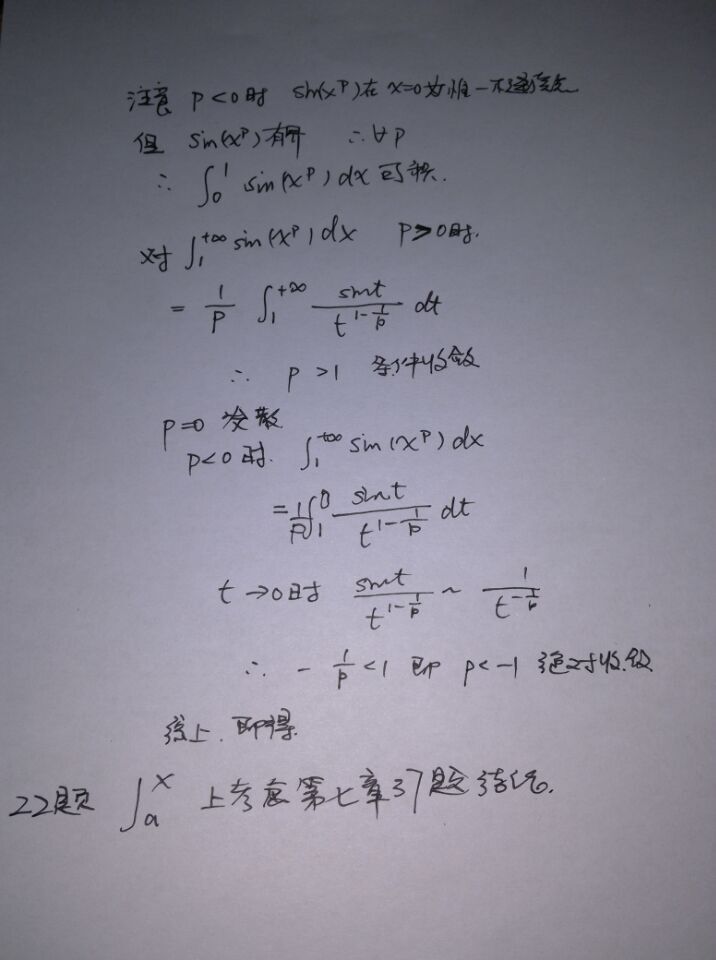 注意 p<0时 sin(x^p)在 x=0为惟一不连续点
但 sin(x^p)有界 ∴∀p
∴ ∫_0^1 sin(x^p) dx 可积.
对 ∫_1^{+∞} sin(x^p) dx p>0时.
= \frac{1}{p} ∫_1^{+∞} \frac{sint}{t^{1-\frac{1}{p}}} dt
∴ p>1 条件收敛
p=0 发散
p<0时. ∫_1^{+∞} sin(x^p) dx
= \frac{1}{p} ∫_1^0 \frac{sint}{t^{1-\frac{1}{p}}} dt
t→0时 \frac{sint}{t^{1-\frac{1}{p}}} ~ \frac{1}{t^{-\frac{1}{p}}}
∴ -\frac{1}{p}<1 即 p<-1 绝对收敛
综上.即得.
22题 ∫_a^x 上考虑第七章37题结论.